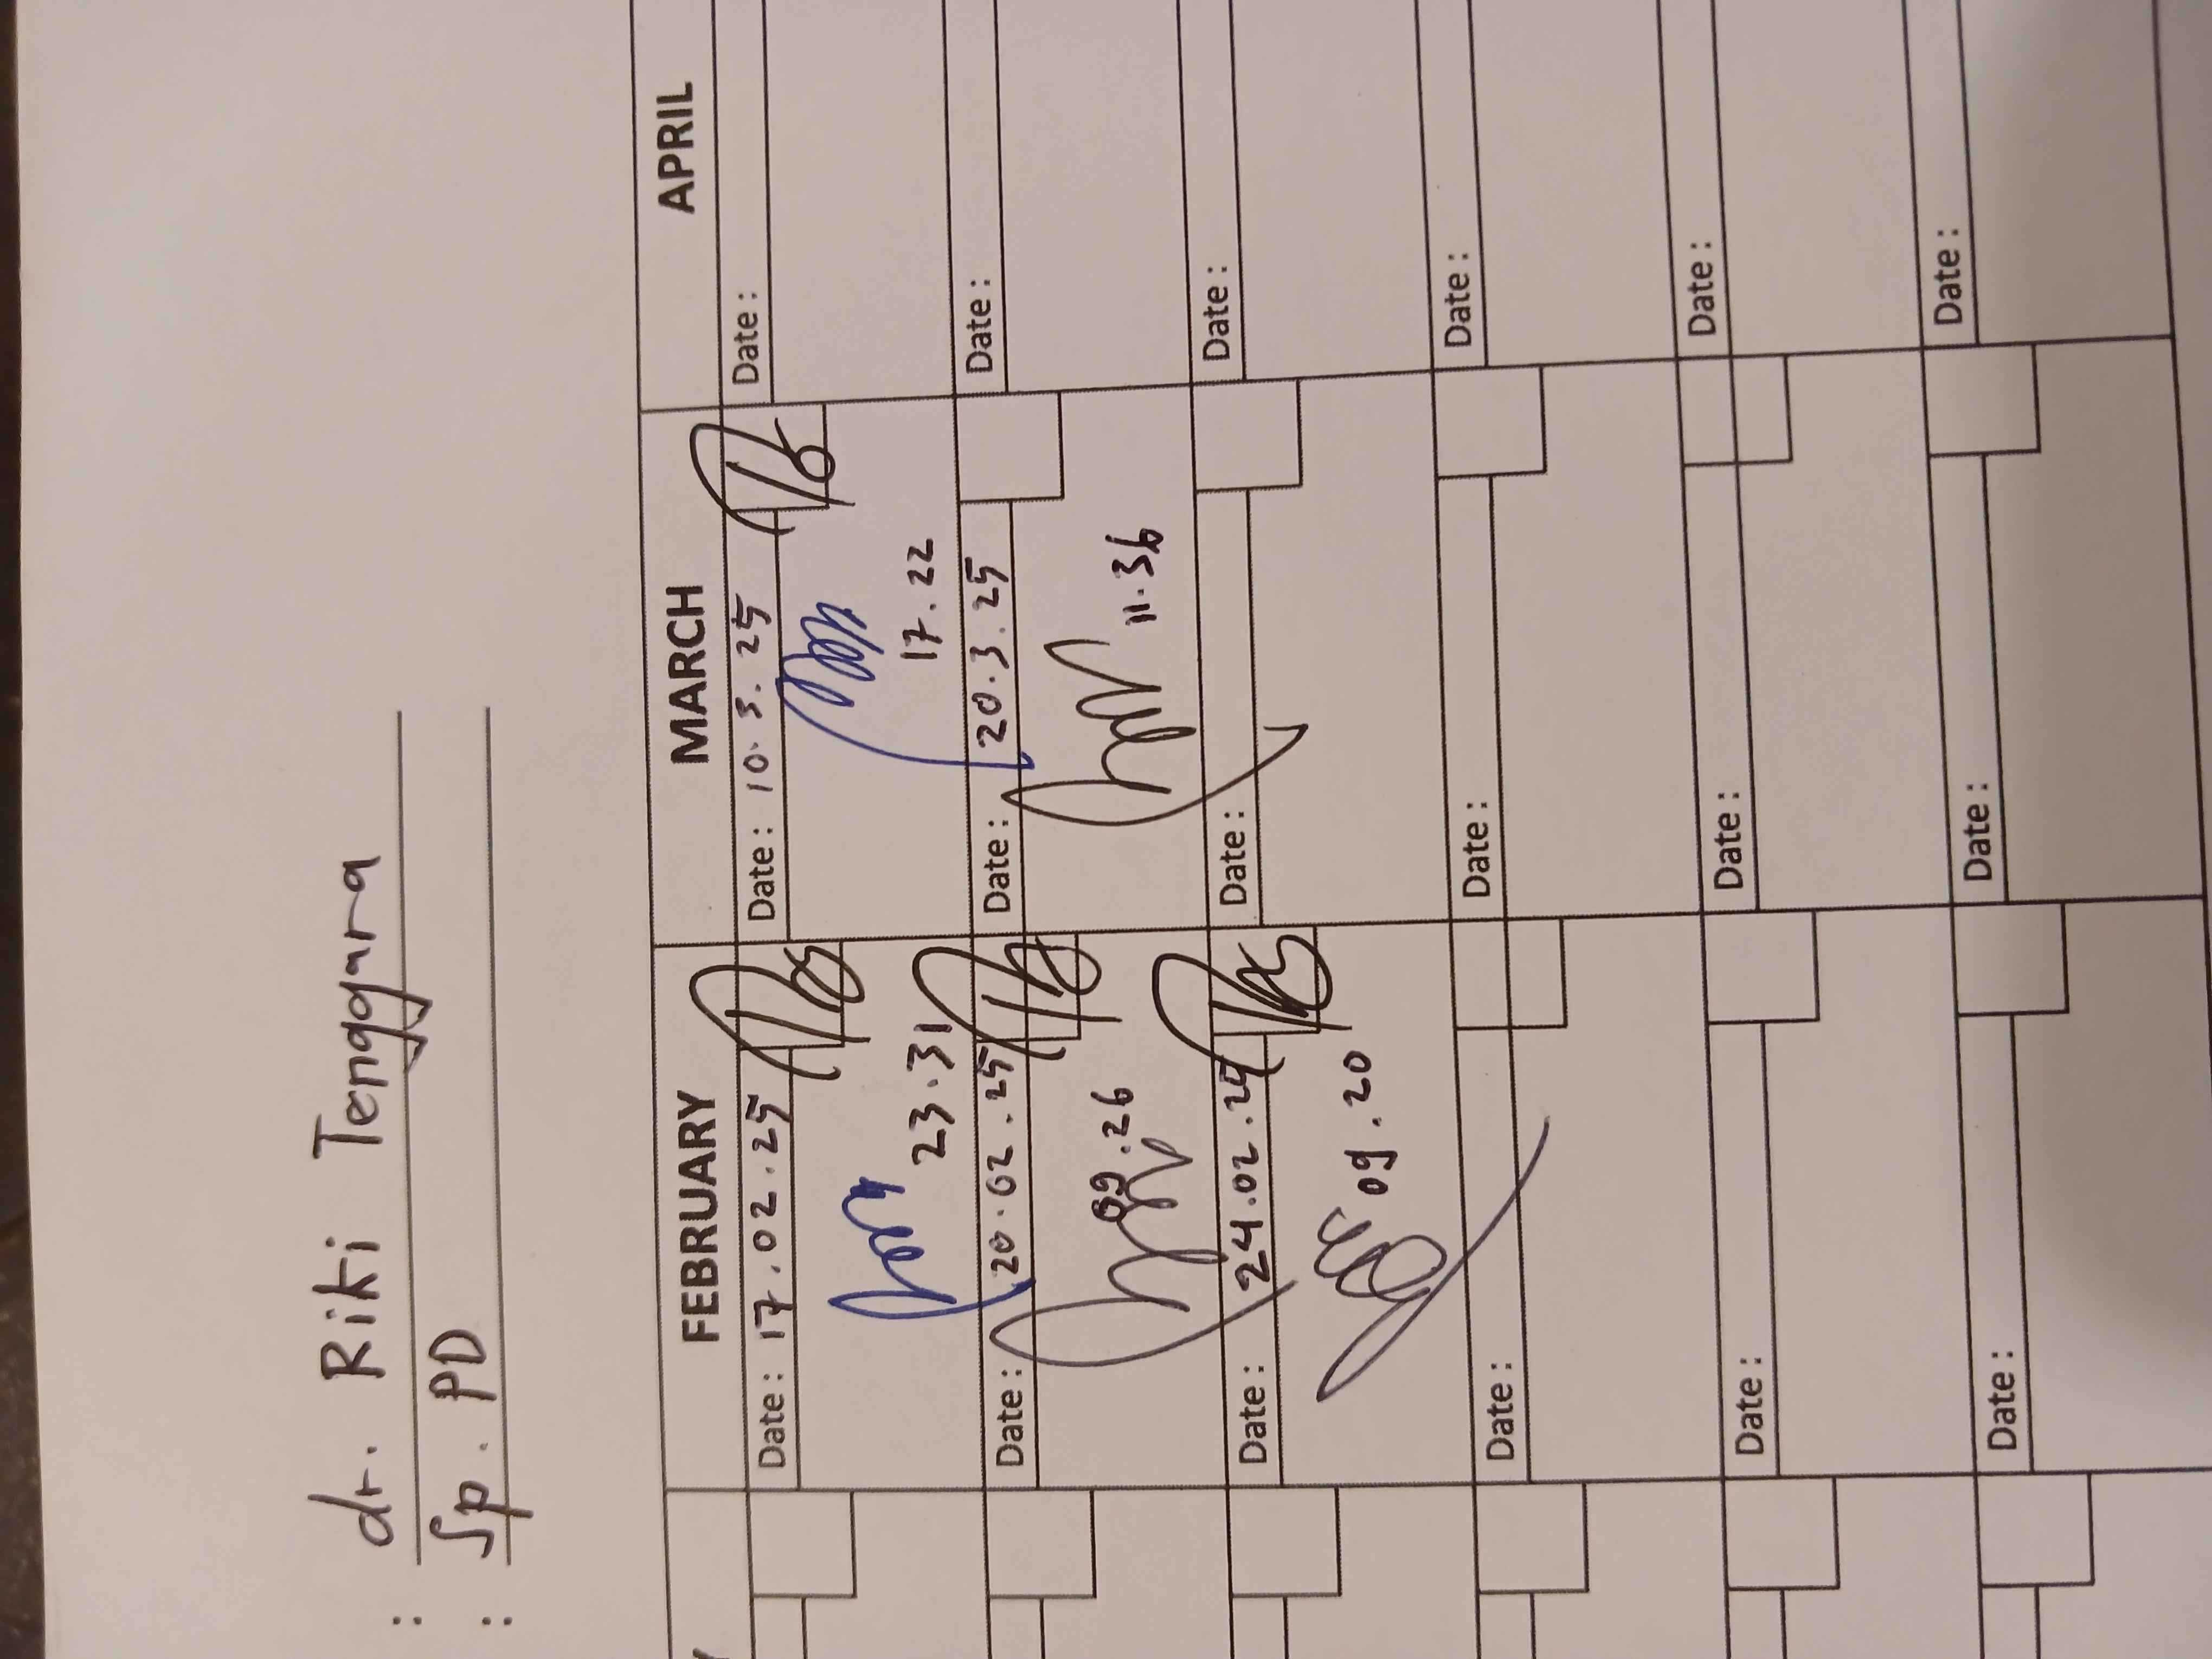 : dr. Riki Tenggara
: Sp. PD
FEBRUARY MARCH APRIL
Date : 17.02.25 Date : 10.3.25 Date :
23.31 17.22
Date : 20.02.25 Date : 20.3.25 Date :
09.26 11.36
Date : 24.02.25 Date : Date :
09.20
Date : Date : Date :
Date : Date : Date :
Date : Date : Date :